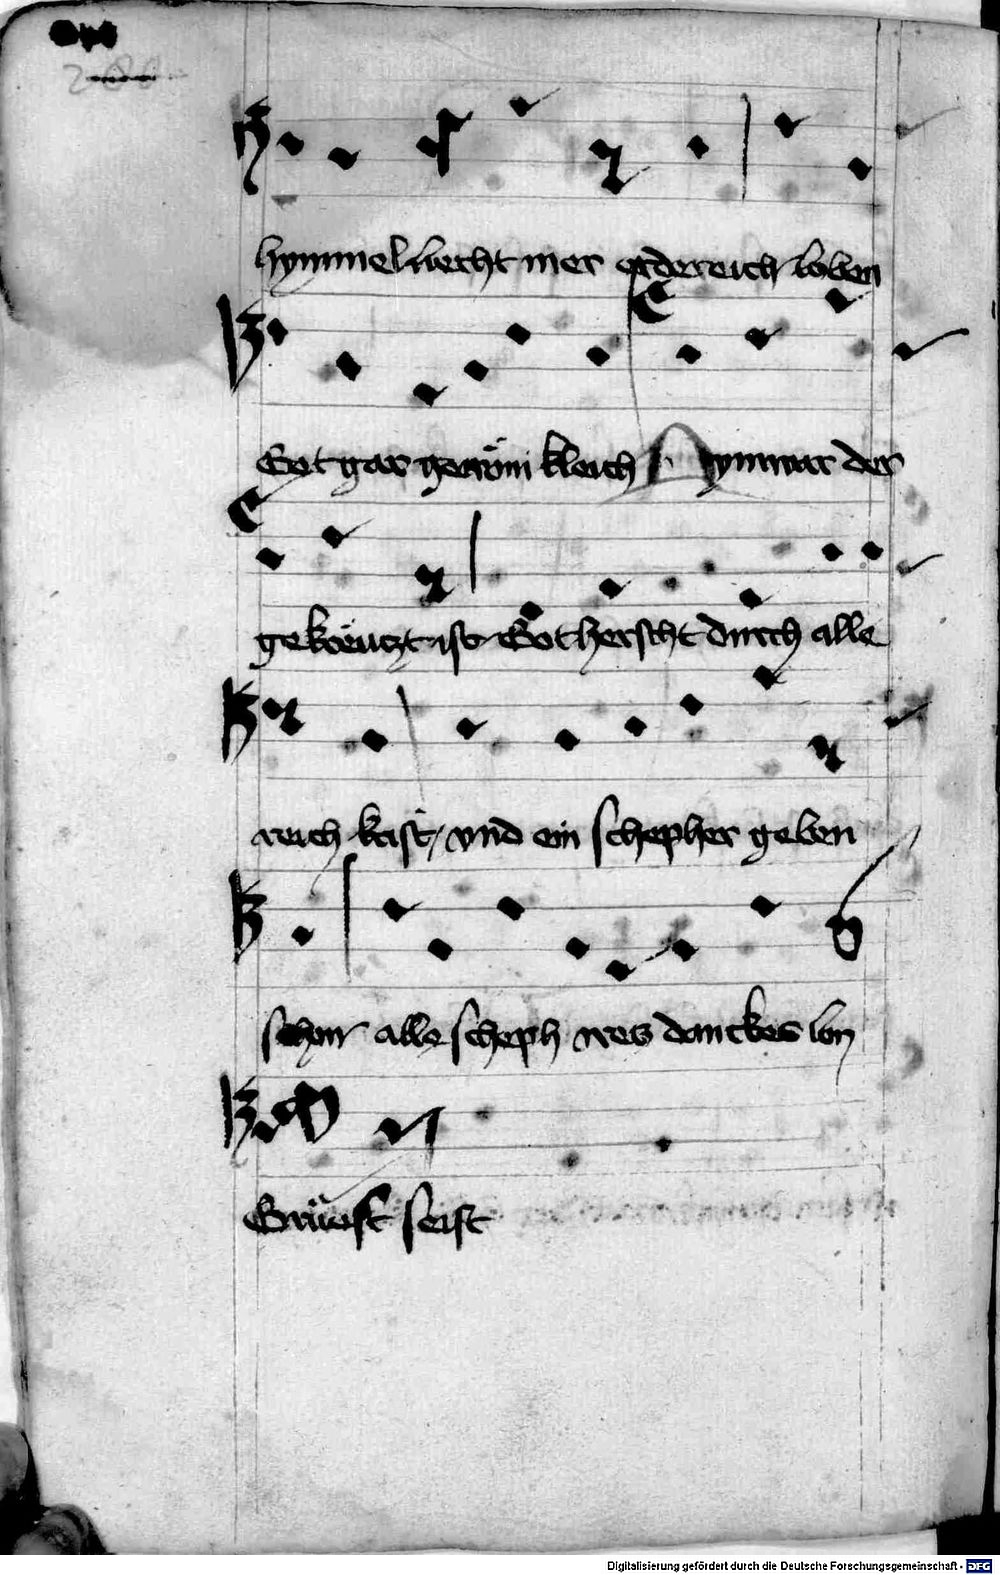 hymmel liecht mer erdereich loben
Got gar gemainkleich Nym war der
gekreutzt ist Got herscht durch alle
reich krist / vnd ein schepher geben
schon alle scheph danckes lon
Grüest seist
Digitalisierung gefördert durch die Deutsche Forschungsgemeinschaft - DFG